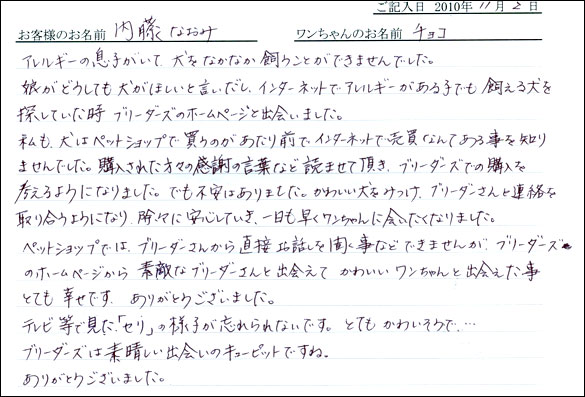 ご記入日 2010年 11月 2日
お客様のお名前 内藤 なおみ ワンちゃんのお名前 チョコ
アレルギーの息子がいて、犬をなかなか飼うことができませんでした。
娘がどうしても犬がほしいと言いだし、インターネットでアレルギーがある子でも飼える犬を
探していた時 ブリーダーズのホームページと出会いました。
私も、犬はペットショップで買うのがあたり前で、インターネットで売買なんてある事を知り
ませんでした。購入された方々の感謝の言葉など読ませて頂き、ブリーダーズでの購入を
考えるようになりました。でも不安はありました。かわいい犬をみつけ、ブリーダーさんと連絡を
取り合うようになり 除々に安心していき、一日も早くワンちゃんに会いたくなりました。
ペットショップでは、ブリーダーさんから直接お話しを聞く事などできませんが、ブリーダーズ
のホームページから 素敵なブリーダーさんと出会えて かわいい ワンちゃんと出会えた事
とても 幸せです、ありがとうございました。
テレビ等で見た、「セリ」の様子が忘れられないです。とてもかわいそうで、…
ブリーダーズは素晴しい出会いのキューピットですね。
ありがとうございました。